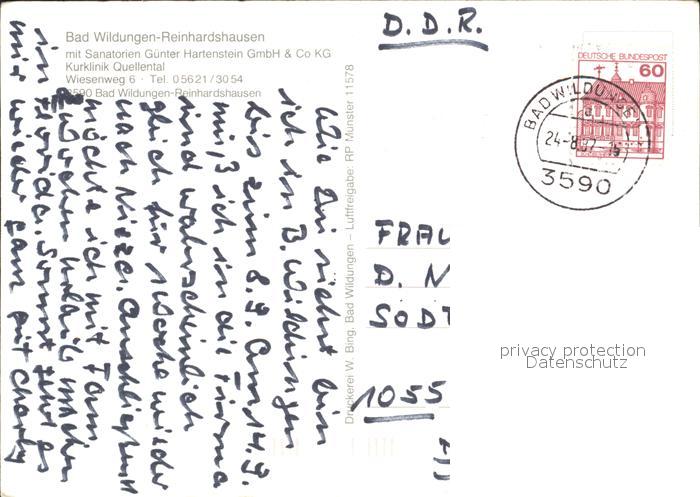 Bad Wildungen-Reinhardshausen
mit Sanatorien Günter Hartenstein GmbH & Co KG
Kurklinik Quellental
Wiesenweg 6 · Tel. 05621/3054
3590 Bad Wildungen-Reinhardshausen
Wie Du siehst bin
ich in B. Wildungen
bis zum 8.9. Am 14.9.
muß ich in die Firma
und wahrscheinlich
gleich für 1 Woche wieder
nach Anschließend
möchte ich mit Tom
2 Wochen Urlaub machen
in Florida. Sonst geht es
mir wieder ganz gut
Druckerei W. Bing, Bad Wildungen – Luftfreigabe: RP Münster 11578
D.D.R.
DEUTSCHE BUNDESPOST
60
BAD WILDUNGEN
24.-8.87
3590
FRAU
D. N
SODT
1055
privacy protection
Datenschutz